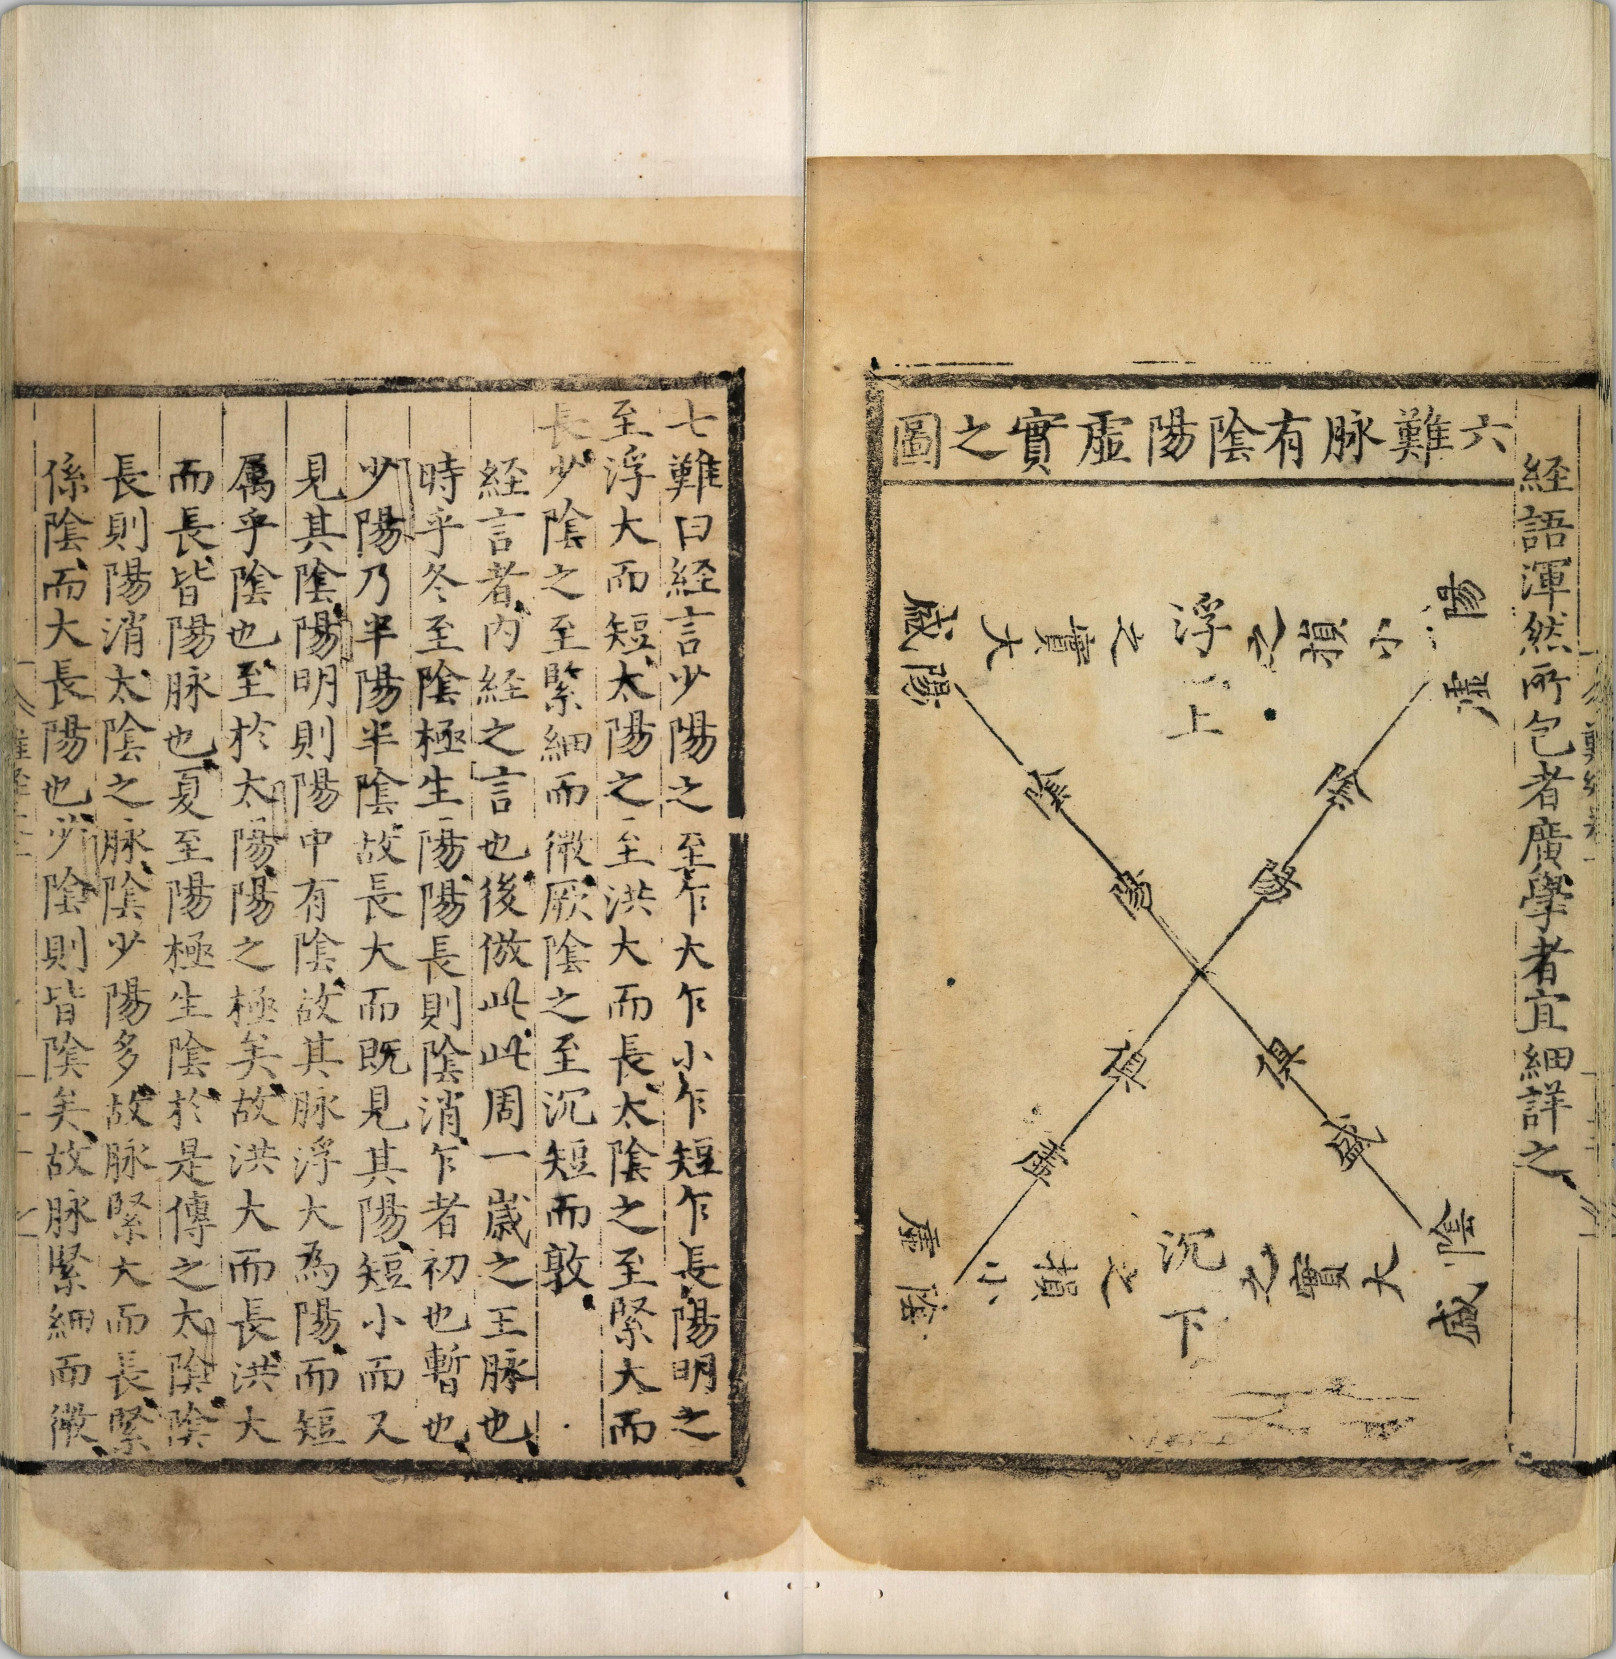 経語渾然所包者廣學者宜細詳之
六難脉有陰陽虛實之圖
陽虛
小損之
浮上
之實大
陽盛
陰陽俱盛
陰陽俱虛
陰盛
大實之
沉下
之損小
陰虛
七難曰経言少陽之至乍大乍小乍短乍長陽明之
至浮大而短太陽之至洪大而長太陰之至緊大而
長少陰之至緊細而微厥陰之至沉短而敦
経言者內経之言也後倣此此周一歲之王脉也
時乎冬至陰極生陽陽長則陰消乍者初也暫也
少陽乃半陽半陰故長大而既見其陽短小而又
見其陰陽明則陽中有陰故其脉浮大為陽而短
属乎陰也至於太陽陽之極矣故洪大而長洪大
而長皆陽脉也夏至陽極生陰於是傳之太陰陰
長則陽消太陰之脉陰少陽多故脉緊大而長緊
係陰而大長陽也少陰則皆陰矣故脉緊細而微